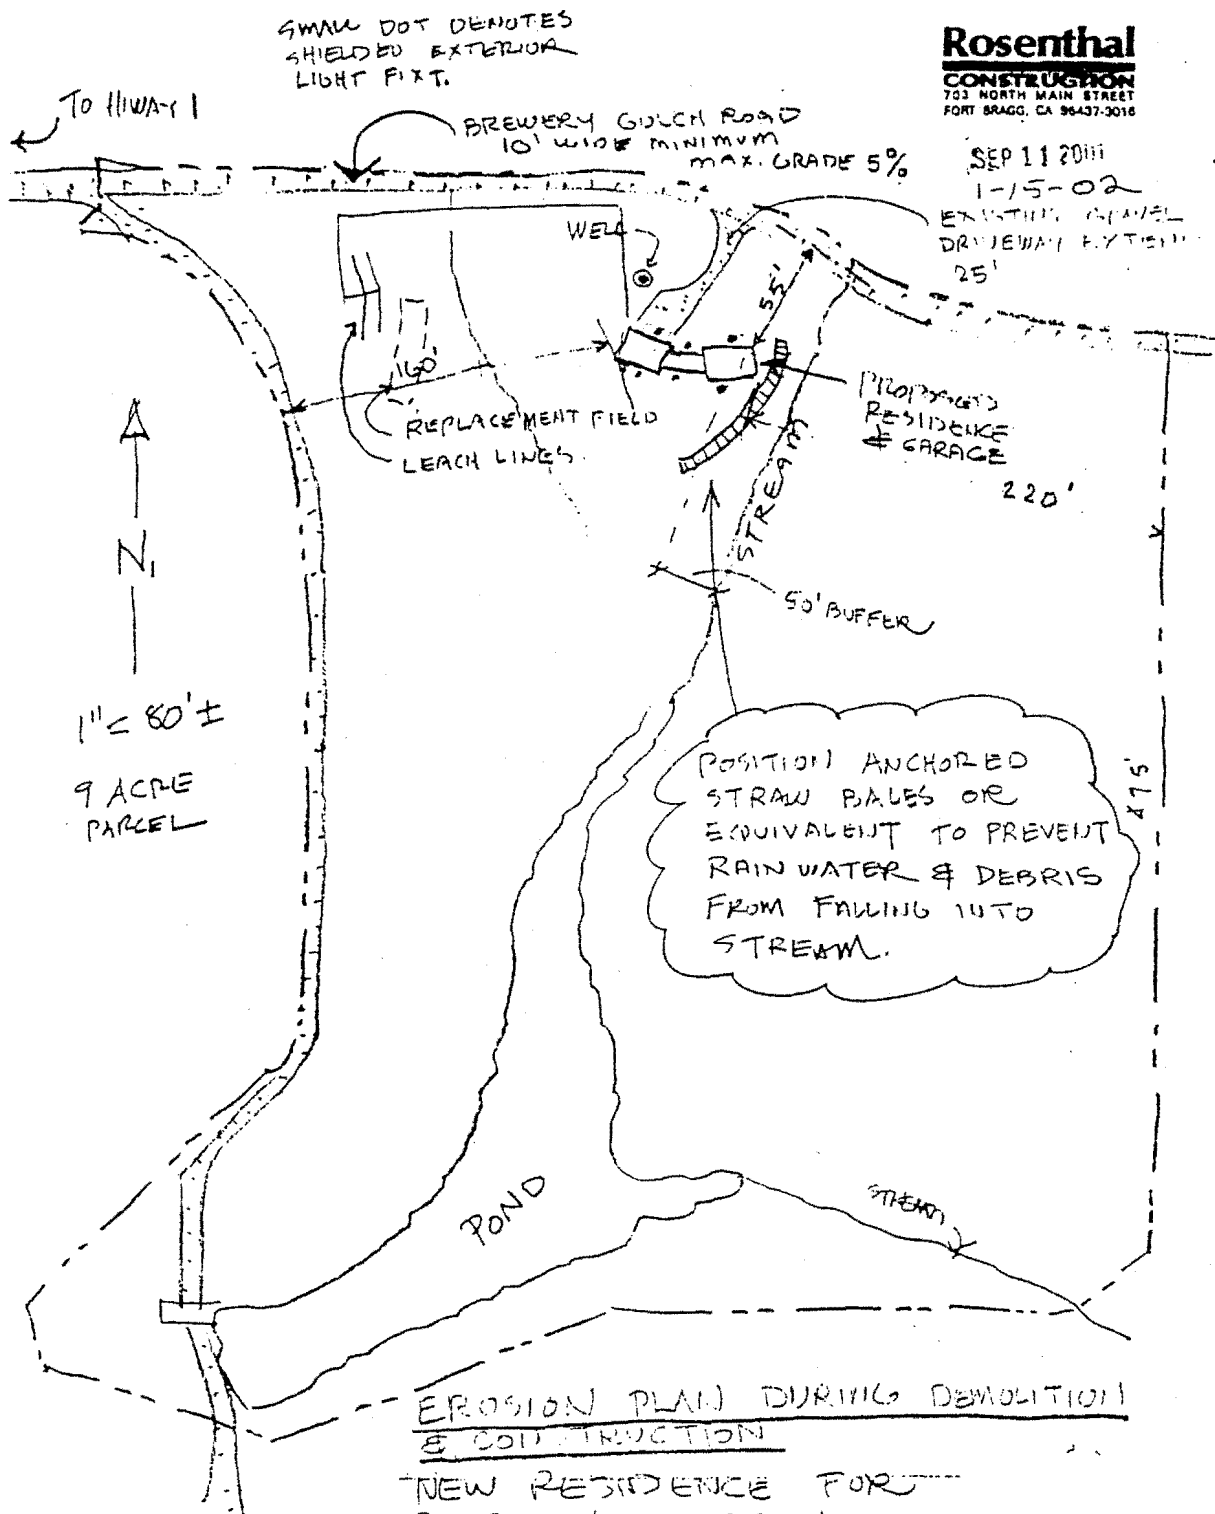 SMALL DOT DENOTES
SHIELDED EXTERIOR
LIGHT FIXT.
Rosenthal
CONSTRUCTION
703 NORTH MAIN STREET
FORT BRAGG, CA 95437-3016
TO HIWAY 1
BREWERY GULCH ROAD
10' WIDE MINIMUM
MAX. GRADE 5%
SEP 11 2001
1-15-02
EXISTING GRAVEL
DRIVEWAY EXTEND
25'
WELL
55'
160'
REPLACEMENT FIELD
LEACH LINES
PROPOSED
RESIDENCE
& GARAGE
220'
STREAM
N
50' BUFFER
1" = 80' ±
9 ACRE
PARCEL
POSITION ANCHORED
STRAW BALES OR
EQUIVALENT TO PREVENT
RAIN WATER & DEBRIS
FROM FALLING INTO
STREAM.
475'
POND
STREAM
EROSION PLAN DURING DEMOLITION
& CONSTRUCTION
NEW RESIDENCE FOR